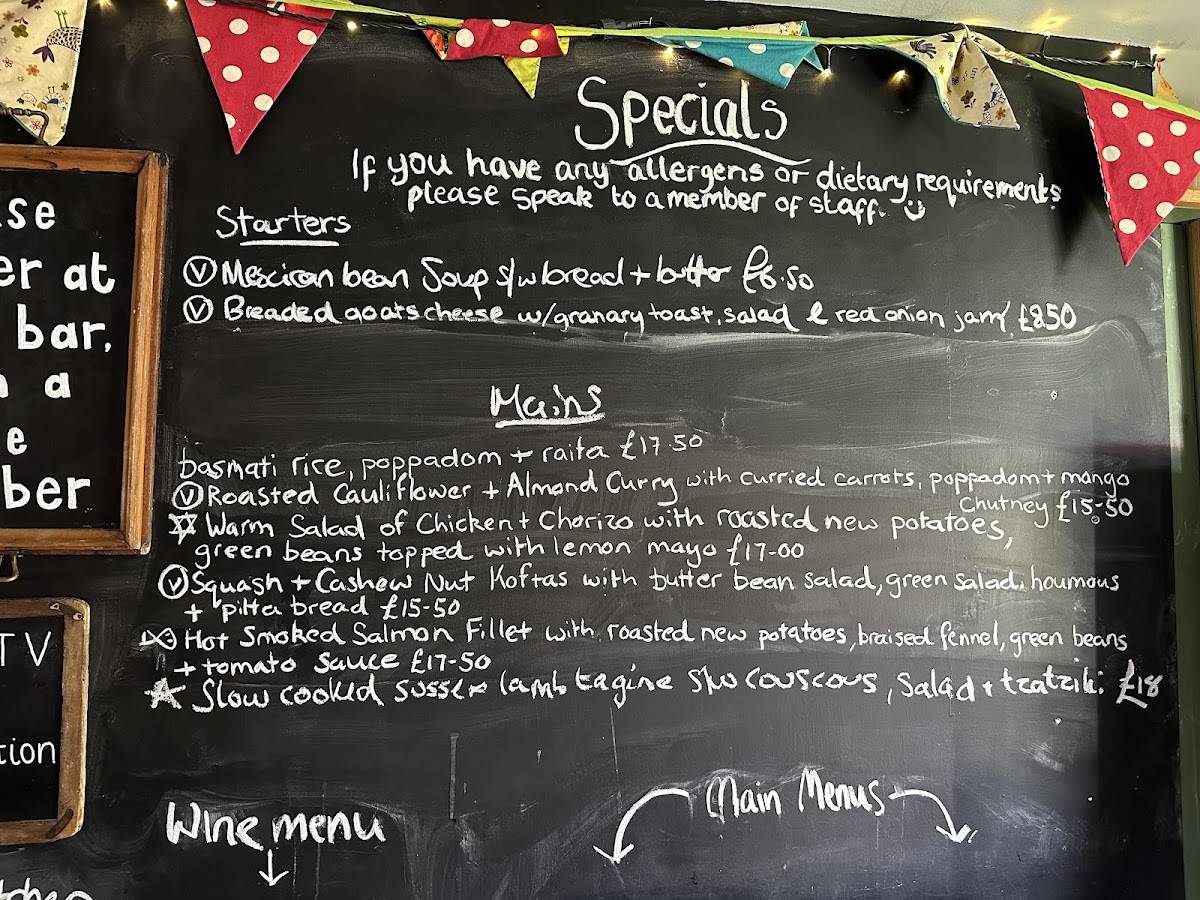 Specials
If you have any allergens or dietary requirements
please speak to a member of staff.
Starters
V Mexican bean Soup s/w bread + butter £6.50
V Breaded goats cheese w/granary toast, salad & red onion jam £8.50
Mains
basmati rice, poppadom + raita £17.50
V Roasted Cauliflower + Almond Curry with curried carrots, poppadom + mango
Chutney £15-50
Warm Salad of Chicken + Chorizo with roasted new potatoes,
green beans topped with lemon mayo £17-00
V Squash + Cashew Nut Koftas with butter bean salad, green salad, houmous
+ pitta bread £15-50
Hot Smoked Salmon Fillet with roasted new potatoes, braised fennel, green beans
+ tomato sauce £17-50
Slow cooked sussex lamb tagine s/w couscous, salad + tzatziki £18
Wine menu
Main Menus
se
er at
bar,
a
e
ber
TV
tion